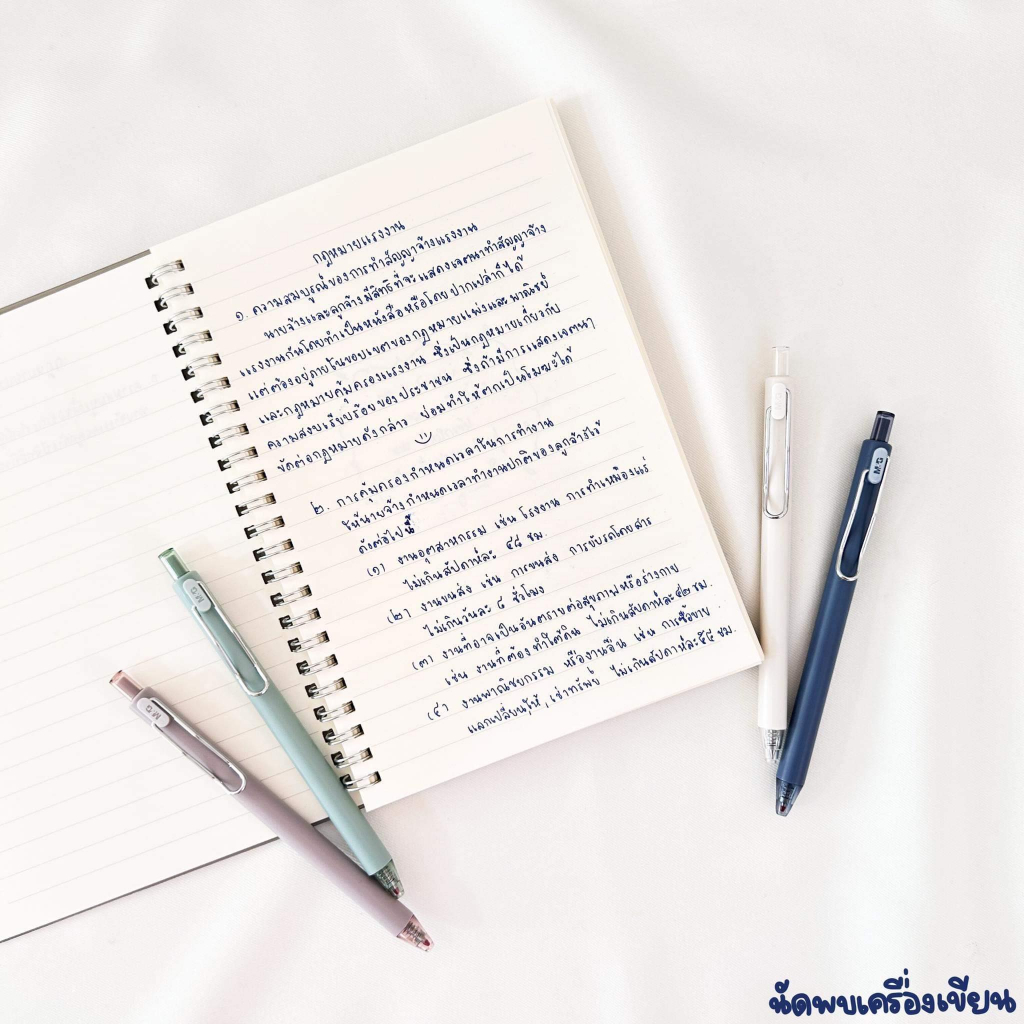 กฎหมายแรงงาน
๑. ความสมบูรณ์ของการทำสัญญาจ้างแรงงาน
นายจ้างและลูกจ้างมีสิทธิที่จะแสดงเจตนาทำสัญญาจ้าง
แรงงานกันโดยทำเป็นหนังสือหรือโดยปากเปล่าก็ได้
แต่ต้องอยู่ภายในขอบเขตของกฎหมายแพ่งและพาณิชย์
และกฎหมายคุ้มครองแรงงาน ซึ่งเป็นกฎหมายเกี่ยวกับ
ความสงบเรียบร้อยของประชาชน ซึ่งถ้ามีการแสดงเจตนา
ขัดต่อกฎหมายดังกล่าว ย่อมทำให้ตกเป็นโมฆะได้
๒. การคุ้มครองกำหนดเวลาในการทำงาน
ให้นายจ้างกำหนดเวลาทำงานปกติของลูกจ้างไว้
ดังต่อไปนี้
(๑) งานอุตสาหกรรม เช่น โรงงาน การทำเหมืองแร่
ไม่เกินสัปดาห์ละ ๔๘ ชม.
(๒) งานขนส่ง เช่น การขนส่ง การขับรถโดยสาร
ไม่เกินวันละ ๘ ชั่วโมง
(๓) งานที่อาจเป็นอันตรายต่อสุขภาพหรือร่างกาย
เช่น งานที่ต้องทำใต้ดิน ไม่เกินสัปดาห์ละ ๔๒ ชม.
(๔) งานพาณิชยกรรม หรืองานอื่น เช่น การซื้อขาย
แลกเปลี่ยน,ให้, เช่าทรัพย์ ไม่เกินสัปดาห์ละ ๕๔ ชม.
M&G
M&G
M&G
นัดพบเครื่องเขียน